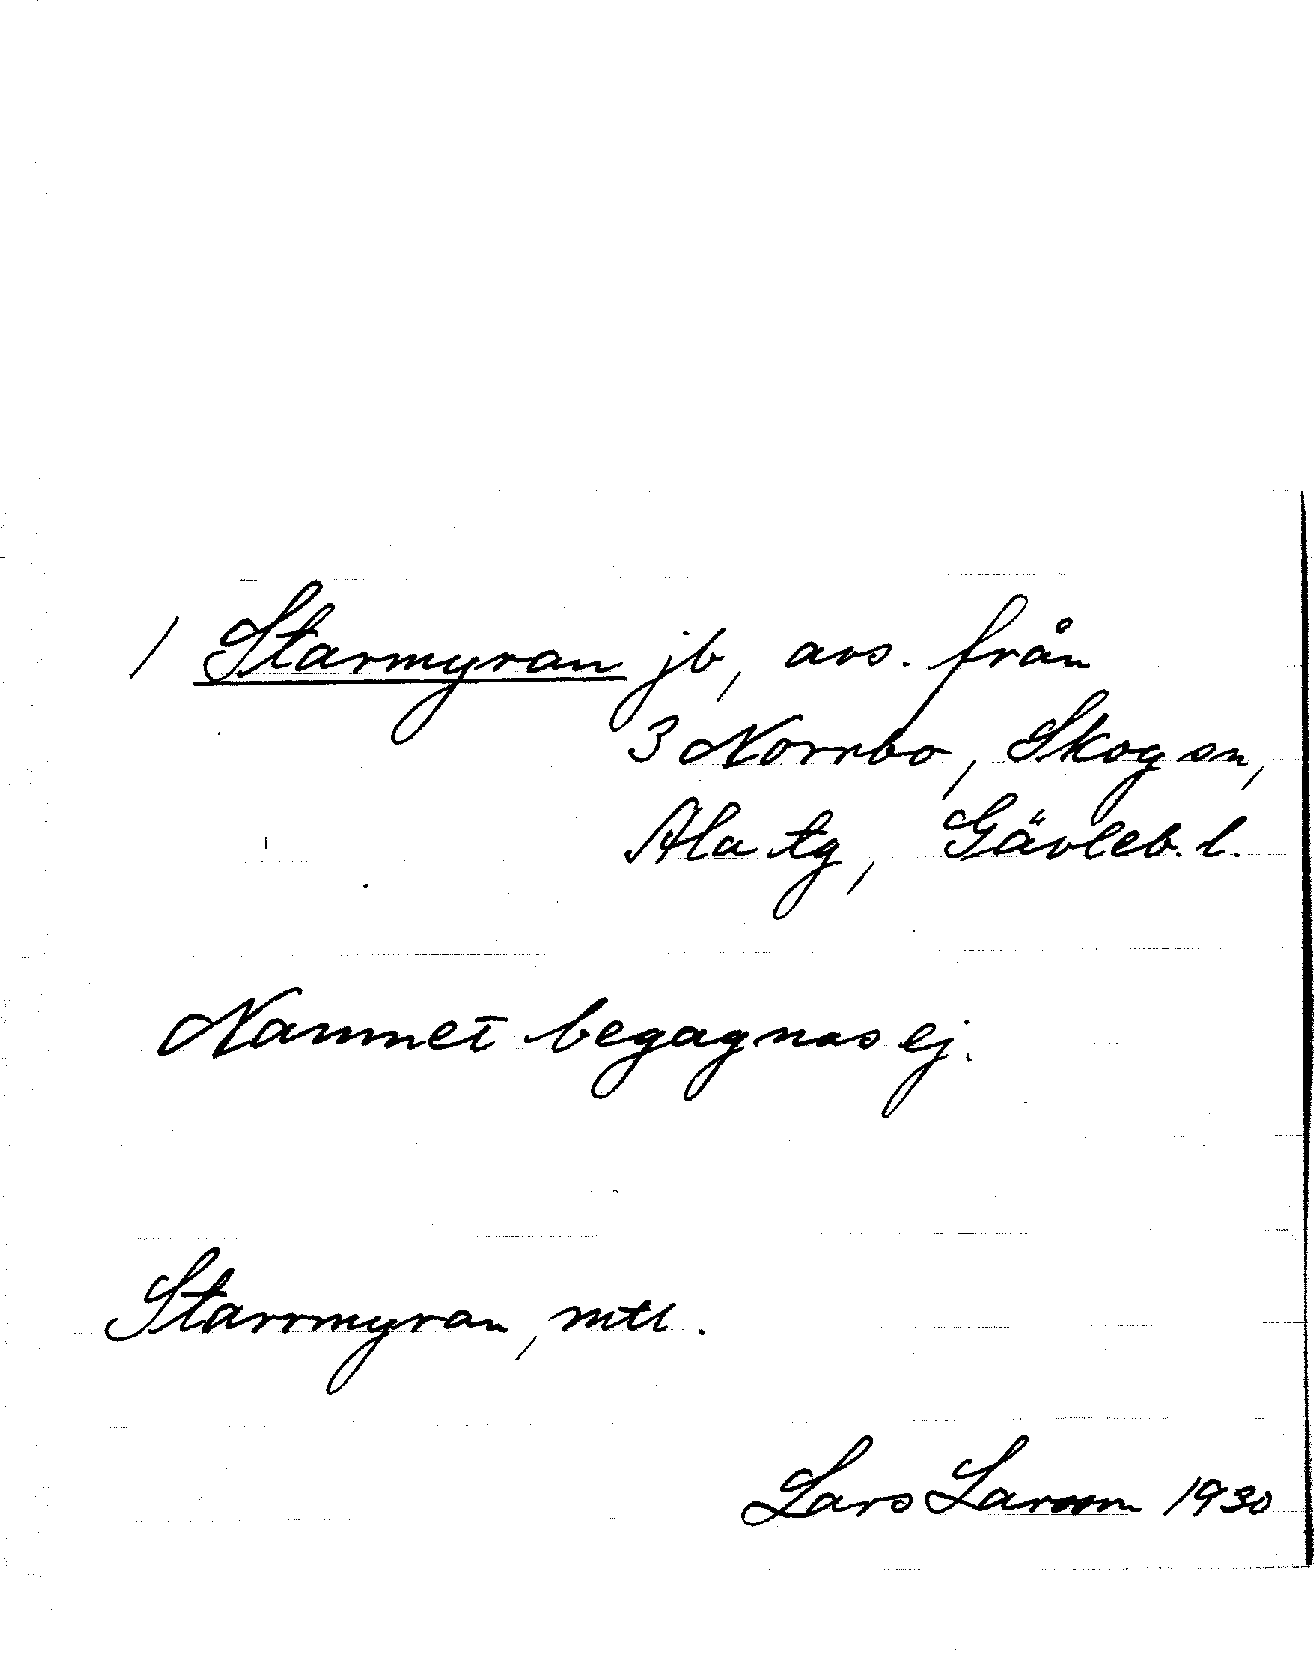 1 Starmyran jb, avs. från
3 Norrbo, Skog sn,
Ala tg, Gävleb. l.
Namnet begagnas ej.
Starrmyran, mtl.
Lars Larsson 1930